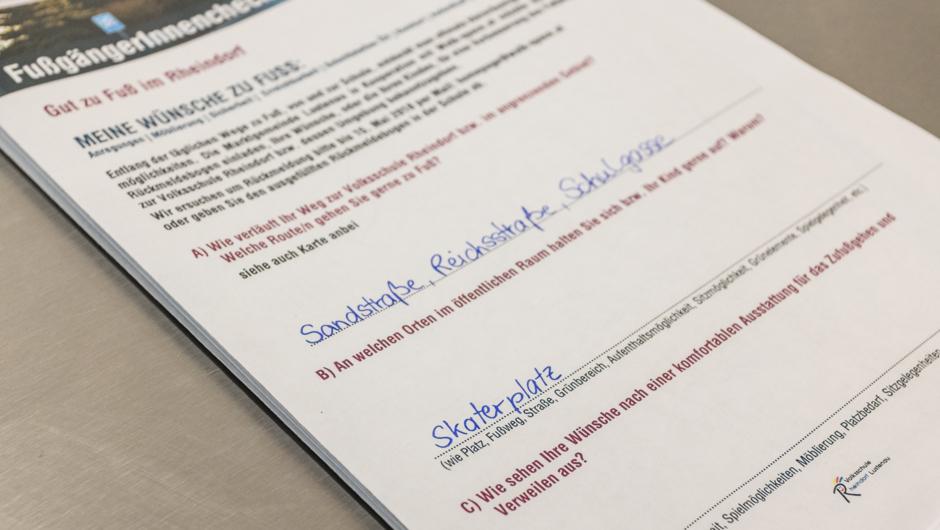 FußgängerInnenchec
Gut zu Fuß im Rheindorf
MEINE WÜNSCHE ZU FUSS:
Anregungen | Möblierung |
Entlang der täglichen Wege zu Fuß, von und zur Schule,
möglichkeiten. Die Marktgemeinde Lustenau in Kooperation mit
Rückmeldebogen einladen Ihre Wünsche, oder die Ihres Kindes, für
zur Volksschule Rheindorf bzw. dessen Umgebung bekanntzugeben.
Wir ersuchen um Rückmeldung bitte bis 15. Mai 2018 per Mail:
oder geben Sie den ausgefüllten Rückmeldebogen in der Schule ab.
A) Wie verläuft Ihr Weg zur Volksschule Rheindorf bzw. im angrenzenden Gebiet?
Welche Route/n gehen Sie gerne zu Fuß?
siehe auch Karte anbei
Sandstraße, Reichsstraße, Schulgasse
B) An welchen Orten im öffentlichen Raum halten Sie sich bzw. Ihr Kind gerne auf? Warum?
Skaterplatz
(wie Platz, Fußweg, Straße, Grünbereich, Aufenthaltsmöglichkeit, Sitzmöglichkeit, Grünelemente, Spielgelegenheit, etc.)
C) Wie sehen Ihre Wünsche nach einer komfortablen Ausstattung für das Zufußgehen und
Verweilen aus?
eit, Spielmöglichkeiten, Möblierung, Platzbedarf, Sitzgelegenheiten
Volksschule
Rheindorf Lustenau